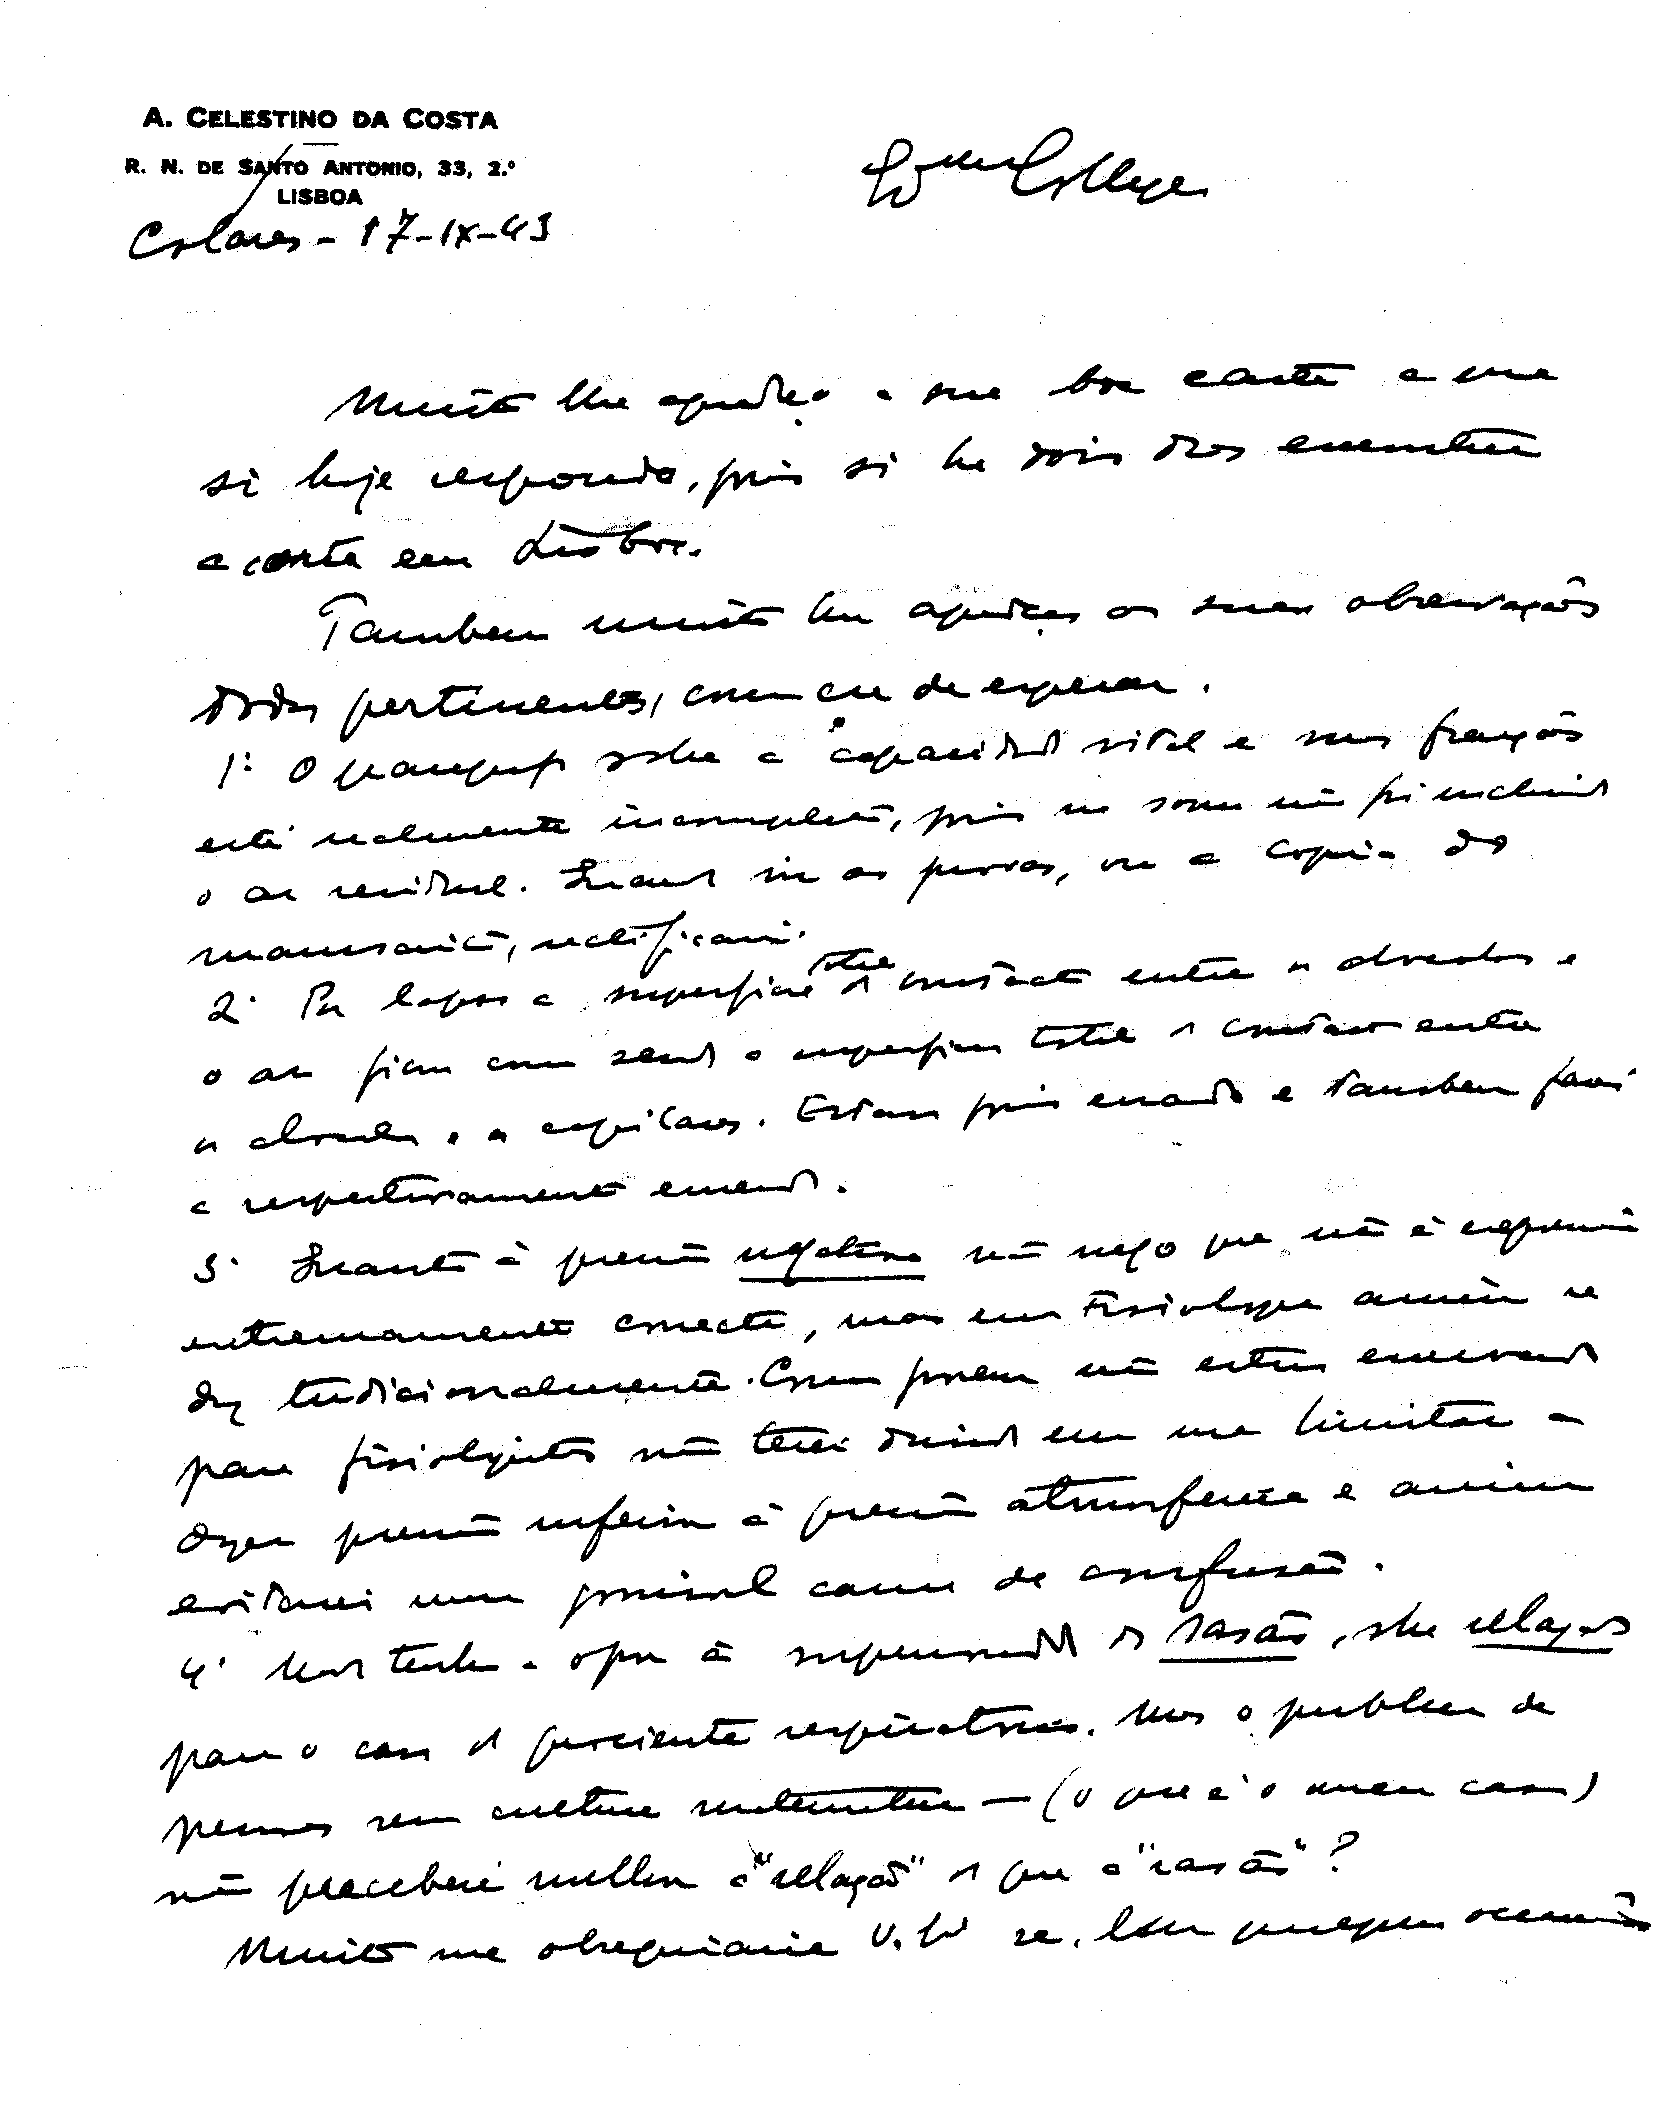 A. CELESTINO DA COSTA
R. N. DE SANTO ANTONIO, 33, 2.º
LISBOA
Colares - 17-IX-43
Ex.mo Collega
Muito lhe agradeço a sua boa carta a que
só hoje respondo, pois só ha dois dias encontrei
a carta em Lisboa.
Tambem muito lhe agradeço as suas observações
todas pertinentes, como era de esperar.
1º O paragrafo sobre a capacidade vital e suas frações
está realmente incompleto, pois na soma não foi incluido
o ar residual. Quando vir as provas, ou a copia do
manuscrito, rectificarei.
2º Por lapso a superficie total de contacto entre os alveolos e
o ar ficou como sendo a superficie total de contacto entre
os alveolos e os capilares. Está pois errado e tambem farei
a respectivamente emenda.
3º Quanto à pressão negativa não nego que não é expressão
extremamente correcta, mas em Fisiologia assim se
diz tradicionalmente. Como porem não estou escrevendo
para fisiologistas não terei duvida em me limitar a
dizer pressão inferior à pressão atmosferica e assim
evitarei uma possivel causa de confusão.
4º Nada tenho a opor à superioridade de razão, sobre relação
para o caso do quociente respiratorio. Mas o publico de
pessoas sem cultura matematica — (o que é o meu caso)
não perceberá melhor o "relação" do que a "razão"?
Muito me obsequiaria V. Ex se, com qualquer ocasião